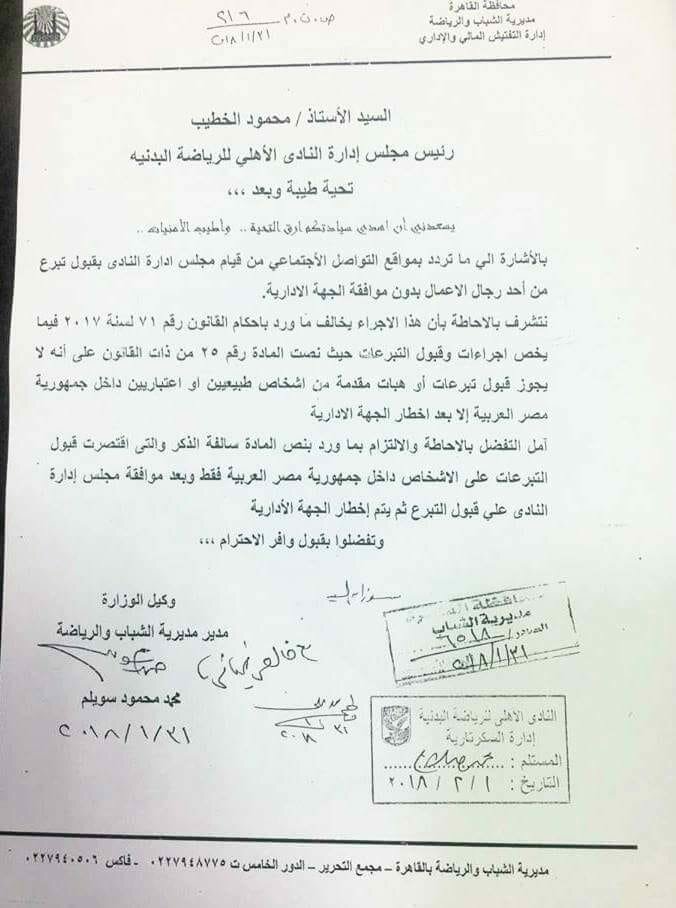 محافظة القاهرة
مديرية الشباب والرياضة
إدارة التفتيش المالي والإداري
٢١٦
٢٠١٨/١/٣١
السيد الأستاذ / محمود الخطيب
رئيس مجلس إدارة النادى الأهلي للرياضة البدنيه
تحية طيبة وبعد ،،،
يسعدني أن اهدى سيادتكم ارق التحية.. وأطيب الأمنيات..
بالأشارة الي ما تردد بمواقع التواصل الأجتماعي من قيام مجلس ادارة النادى بقبول تبرع
من أحد رجال الاعمال بدون موافقة الجهة الادارية.
نتشرف بالاحاطة بأن هذا الاجراء يخالف ما ورد باحكام القانون رقم ٧١ لسنة ٢٠١٧ فيما
يخص اجراءات وقبول التبرعات حيث نصت المادة رقم ٢٥ من ذات القانون على أنه لا
يجوز قبول تبرعات أو هبات مقدمة من اشخاص طبيعيين او اعتباريين داخل جمهورية
مصر العربية إلا بعد اخطار الجهة الادارية
آمل التفضل بالاحاطة والالتزام بما ورد بنص المادة سالفة الذكر والتى اقتصرت قبول
التبرعات على الاشخاص داخل جمهورية مصر العربية فقط وبعد موافقة مجلس إدارة
النادى علي قبول التبرع ثم يتم إخطار الجهة الأدارية
وتفضلوا بقبول وافر الاحترام ،،،
وكيل الوزارة
مدير مديرية الشباب والرياضة
محمد محمود سويلم
٢٠١٨/١/٣١
مديرية الشباب
الصادر/ ٦٥١٨
٢٠١٨/١/٣١
النادى الاهلى للرياضة البدنية
إدارة السكرتارية
المستلم :
التاريخ : ٢٠١٨/٢/١
مديرية الشباب والرياضة بالقاهرة – مجمع التحرير – الدور الخامس ت ٠٢٢٧٩٤٨٧٧٥ - فاكس ٠٢٢٧٩٤٠٥٠٦